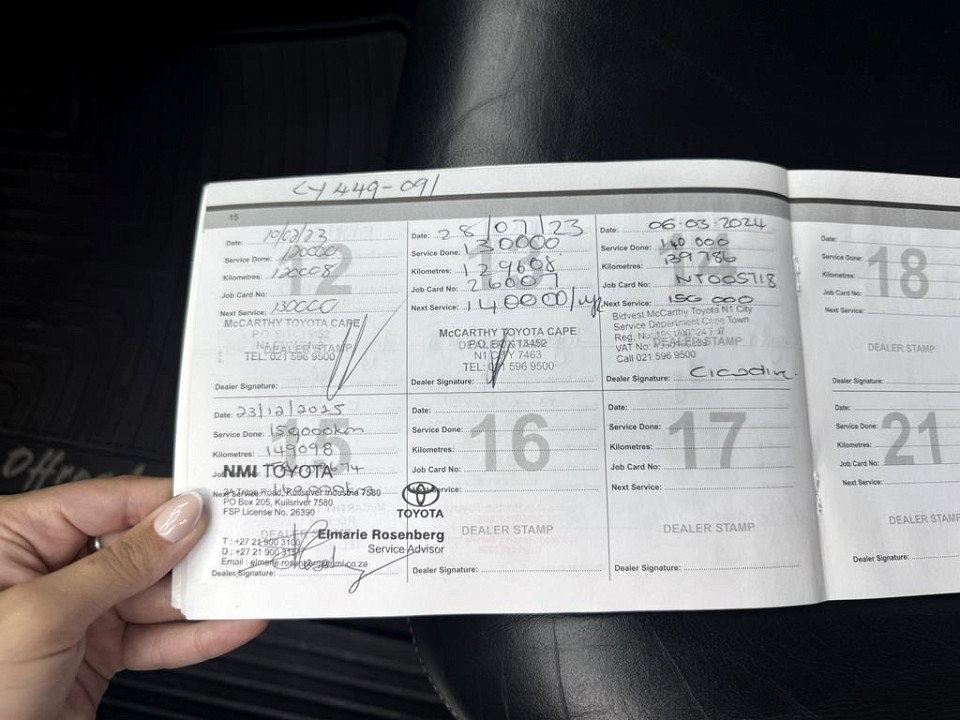 CY 449-091
15
Date: 10/02/23
Service Done: 120000
Kilometres: 120008
Job Card No:
Next Service: 130000
12
McCARTHY TOYOTA CAPE
DEALER STAMP
TEL: 021 596 9500
Dealer Signature:
Date: 28/07/23
Service Done: 130000
Kilometres: 129608
Job Card No: 26007
Next Service: 140000/
McCARTHY TOYOTA CAPE
P.O. BOX 13452
N1 CITY 7463
TEL: 021 596 9500
Dealer Signature:
Date: 06.03.2024
Service Done: 140 000
Kilometres: 139786
Job Card No: NT005718
Next Service: 150 000
Bidvest McCarthy Toyota N1 City
Service Department Cape Town
Reg. No:
VAT No:
DEALER STAMP
Call 021 596 9500
Dealer Signature:
Date:
Service Done:
Kilometres:
Job Card No:
Next Service:
18
DEALER STAMP
Dealer Signature:
Date: 23/12/2025
Service Done: 150000km
Kilometres: 149098
NMI TOYOTA
Kuilsriver Industria 7580
PO Box 205, Kuilsriver 7580
FSP License No. 26390
TOYOTA
Elmarie Rosenberg
Service Advisor
T : +27 21 900 3100
D : +27 21 900
Email : elmarie.rosenberg@nmi.co.za
Dealer Signature:
Date:
Service Done:
Kilometres:
Job Card No:
Service:
16
DEALER STAMP
Dealer Signature:
Date:
Service Done:
Kilometres:
Job Card No:
Next Service:
17
DEALER STAMP
Dealer Signature:
Date:
Service Done:
Kilometres:
Job Card No:
Next Service:
21
DEALER STAMP
Dealer Signature: